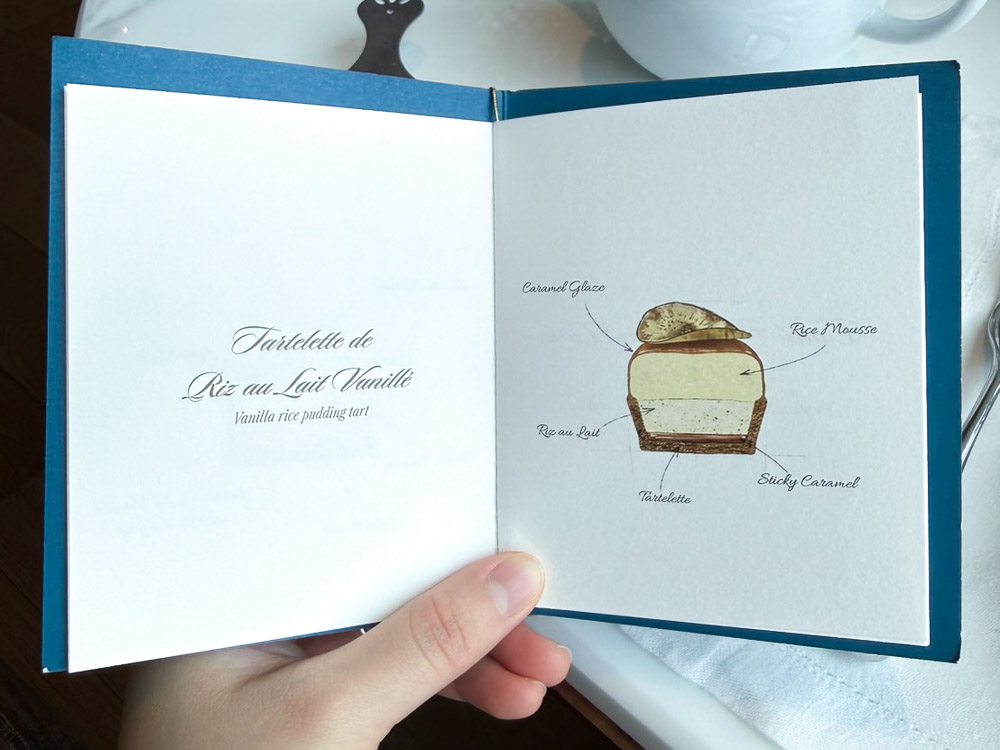 Tartelette de
Riz au Lait Vanillé
Vanilla rice pudding tart
Caramel Glaze
Rice Mousse
Riz au Lait
Sticky Caramel
Tartelette